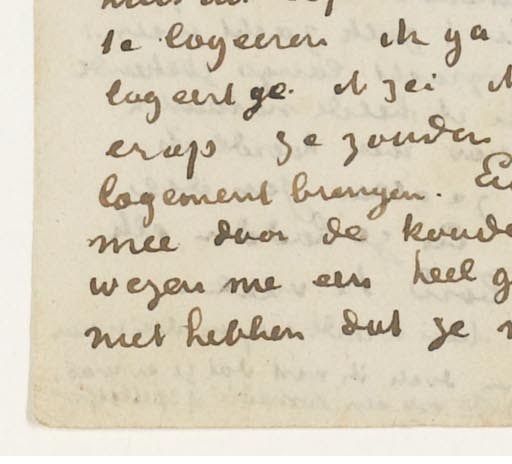 te logeeren ik ga
logeert ge. ik zei
erop ze zouden
logement brengen.
mee door de koude
wezen me een heel g
met hebben dat ze